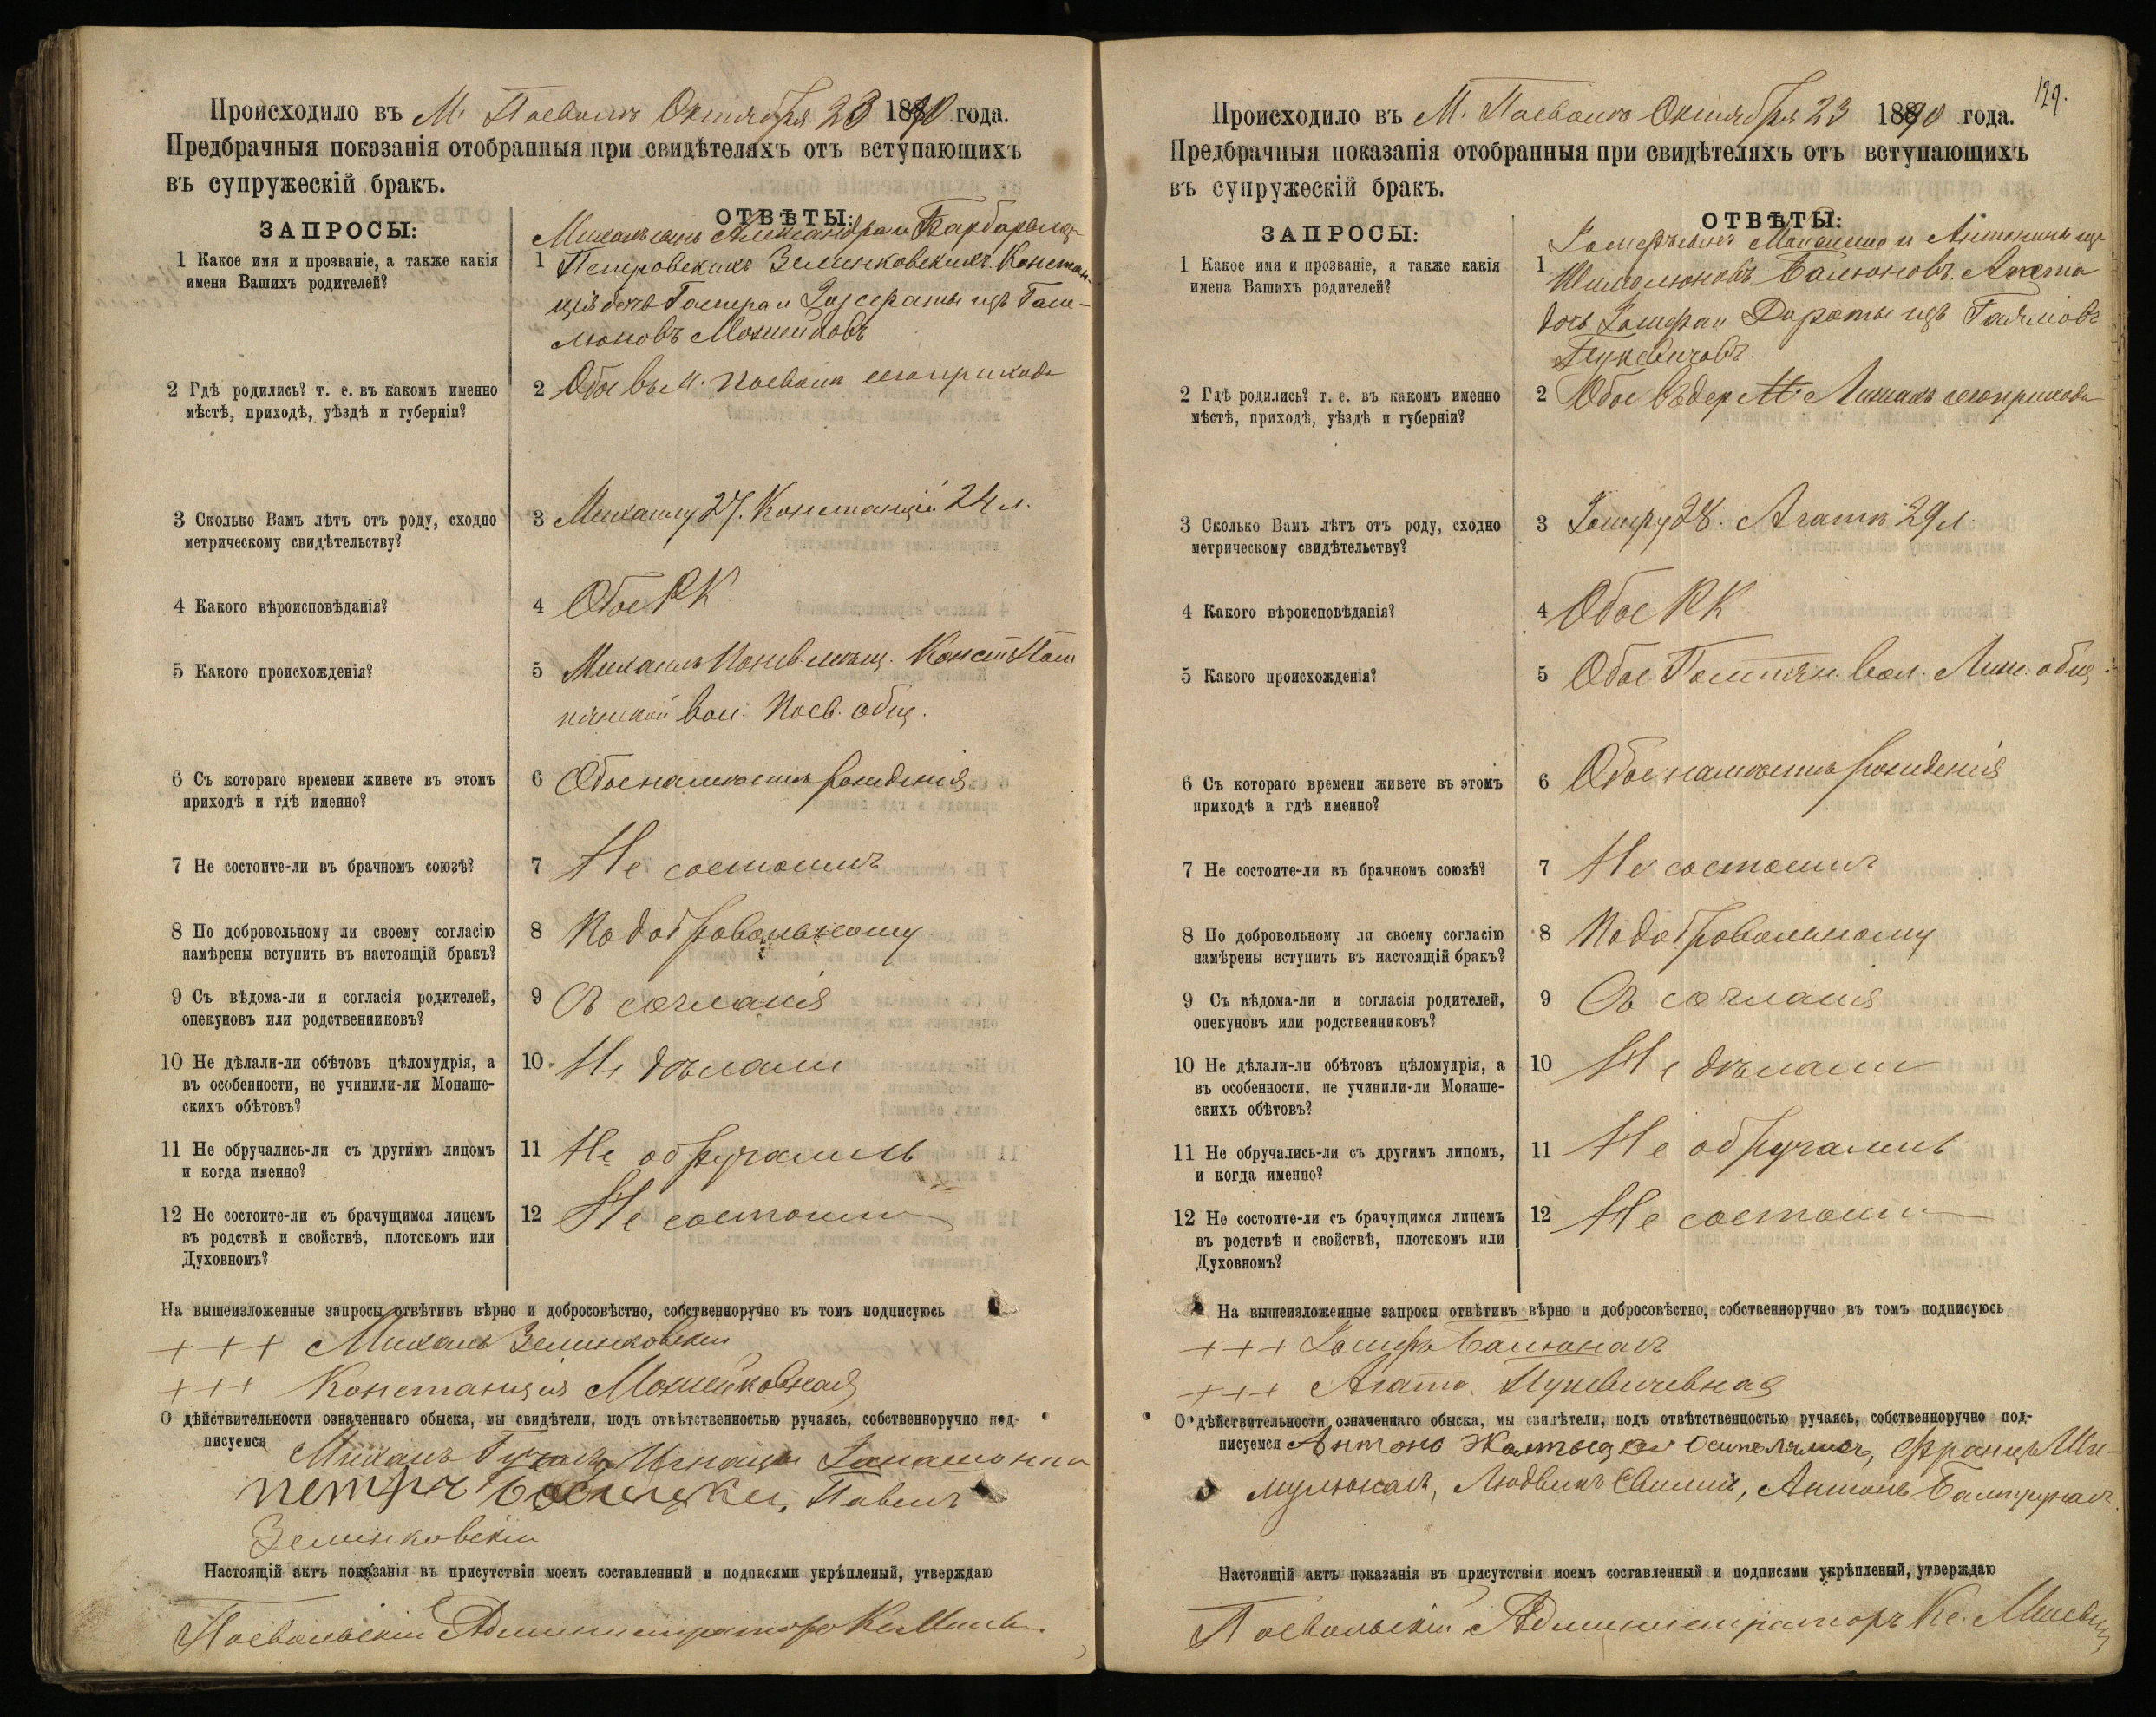 Происходило въ М. Посволь Октября 23 1890 года.
Предбрачныя показанія отобранныя при свидѣтеляхъ отъ вступающихъ
въ супружескій бракъ.
ЗАПРОСЫ:
ОТВѢТЫ:
1 Какое имя и прозваніе, а также какія
имена Вашихъ родителей?
1 Михалъ сынъ Александра и Барбары изъ
Петровскихъ Зелинковскихъ. Констан-
ція дочь
Мошейковъ
2 Гдѣ родились? т. е. въ какомъ именно
мѣстѣ, приходѣ, уѣздѣ и губерніи?
2 Обое въ м. Посволь сего прихода
3 Сколько Вамъ лѣтъ отъ роду, сходно
метрическому свидѣтельству?
3 Михаилу 27. Констанціи 24 л.
4 Какого вѣроисповѣданія?
4 Обое РК.
5 Какого происхожденія?
5 Михаилъ Понев. мѣщ. Конст.
вол. Посв. общ.
6 Съ котораго времени живете въ этомъ
приходѣ и гдѣ именно?
6 Обое на мѣстѣ рожденія
7 Не состоите-ли въ брачномъ союзѣ?
7 Не состоимъ
8 По добровольному ли своему согласію
намѣрены вступить въ настоящій бракъ?
8 По добровольному.
9 Съ вѣдома-ли и согласія родителей,
опекуновъ или родственниковъ?
9 Съ согласія
10 Не дѣлали-ли обѣтовъ цѣломудрія, а
въ особенности, не учинили-ли Монаше-
скихъ обѣтовъ?
10 Не дѣлали
11 Не обручались-ли съ другимъ лицомъ
и когда именно?
11 Не обручались
12 Не состоите-ли съ брачущимся лицемъ
въ родствѣ и свойствѣ, плотскомъ или
Духовномъ?
12 Не состоимъ
На вышеизложенные запросы отвѣтивъ вѣрно и добросовѣстно, собственноручно въ томъ подписуюсь
+++ Михалъ Зелинковскій
+++ Констанція Мошейковная
О дѣйствительности означеннаго обыска, мы свидѣтели, подъ отвѣтственностью ручаясь, собственноручно под-
писуемся Михалъ Игнацы
петръ Павелъ
Зелинковскій
Настоящій актъ показанія въ присутствіи моемъ составленный и подписями укрѣпленый, утверждаю
Посвольскій Администраторъ Кс.
129.
Происходило въ М. Посволь Октября 23 1890 года.
Предбрачныя показанія отобранныя при свидѣтеляхъ отъ вступающихъ
въ супружескій бракъ.
ЗАПРОСЫ:
ОТВѢТЫ:
1 Какое имя и прозваніе, а также какія
имена Вашихъ родителей?
1 Іосифъ сынъ и Антонины изъ
Балюновъ. Агата
дочь Іосифа и Дороты изъ
Пукевичовъ.
2 Гдѣ родились? т. е. въ какомъ именно
мѣстѣ, приходѣ, уѣздѣ и губерніи?
2 Обое въ дер. сего прихода
3 Сколько Вамъ лѣтъ отъ роду, сходно
метрическому свидѣтельству?
3 Іосифу 28. Агатѣ 29 л.
4 Какого вѣроисповѣданія?
4 Обое РК.
5 Какого происхожденія?
5 Обое вол. общ.
6 Съ котораго времени живете въ этомъ
приходѣ и гдѣ именно?
6 Обое на мѣстѣ рожденія
7 Не состоите-ли въ брачномъ союзѣ?
7 Не состоимъ
8 По добровольному ли своему согласію
намѣрены вступить въ настоящій бракъ?
8 По добровольному
9 Съ вѣдома-ли и согласія родителей,
опекуновъ или родственниковъ?
9 Съ согласія
10 Не дѣлали-ли обѣтовъ цѣломудрія, а
въ особенности, не учинили-ли Монаше-
скихъ обѣтовъ?
10 Не дѣлали
11 Не обручались-ли съ другимъ лицомъ,
и когда именно?
11 Не обручались
12 Не состоите-ли съ брачущимся лицемъ
въ родствѣ и свойствѣ, плотскомъ или
Духовномъ?
12 Не состоимъ
На вышеизложенные запросы отвѣтивъ вѣрно и добросовѣстно, собственноручно въ томъ подписуюсь
+++ Іосифъ Балюнасъ
+++ Агата Пукевичевная
О дѣйствительности означеннаго обыска, мы свидѣтели, подъ отвѣтственностью ручаясь, собственноручно под-
писуемся Антонъ Францъ Ши-
мулюнасъ, Людвикъ Антонъ Балтрунасъ.
Настоящій актъ показанія въ присутствіи моемъ составленный и подписями укрѣпленый, утверждаю
Посвольскій Администраторъ Кс.